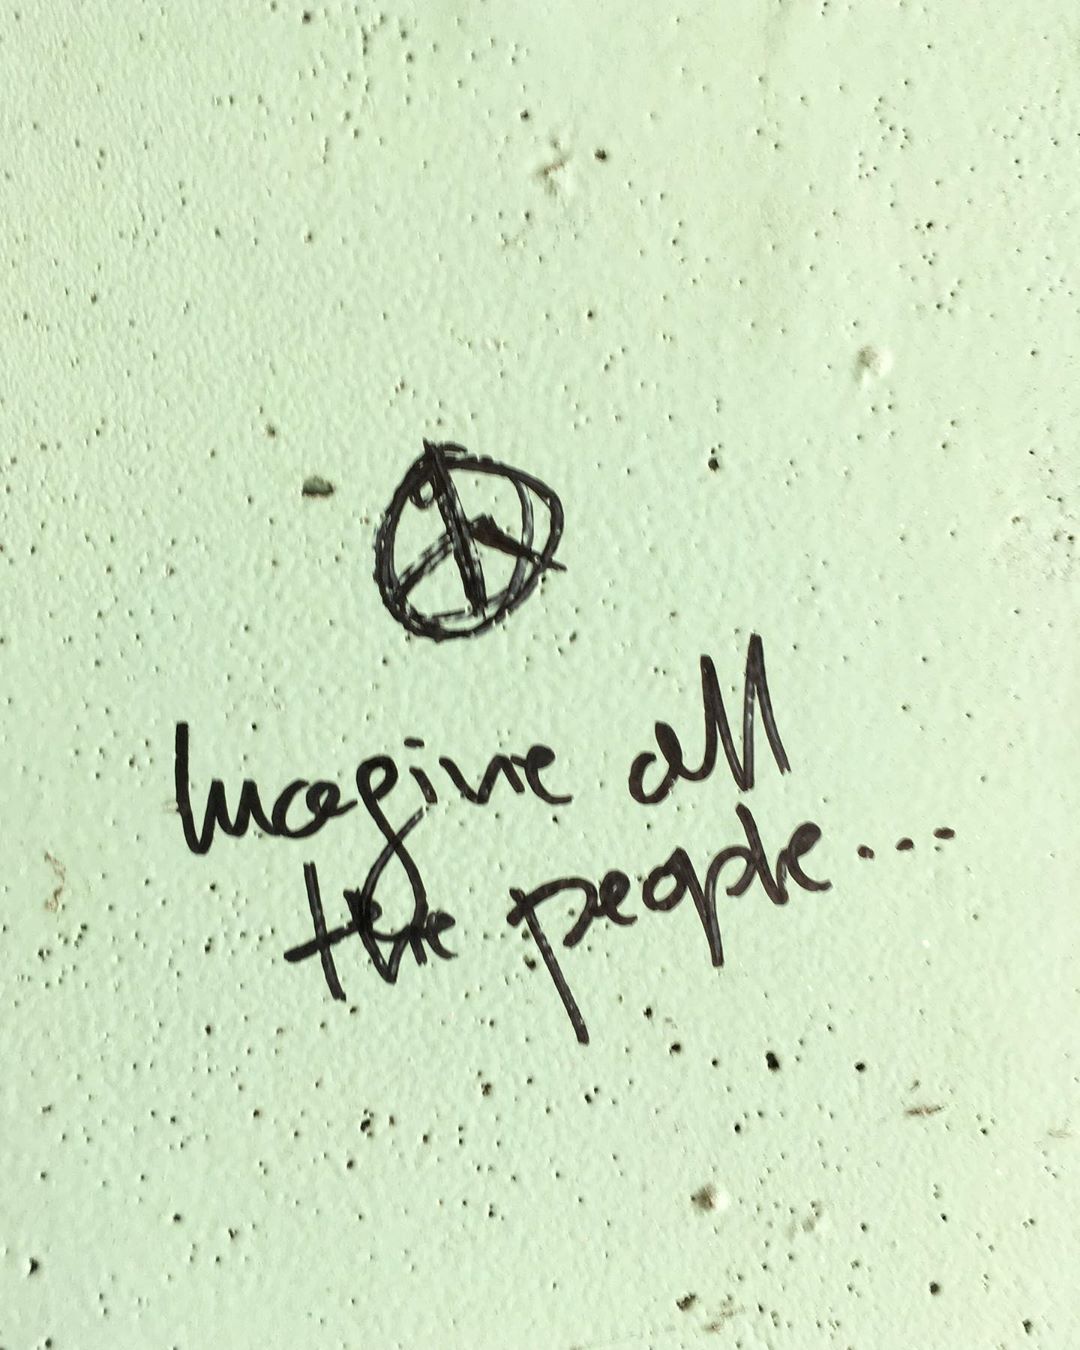 Imagine all
the people...